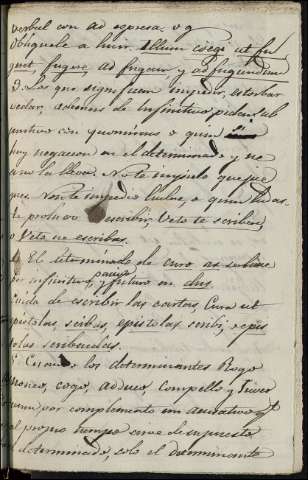 verbal con ad espresa. v g
Obliguele a huir. Illum coegi ut fu
geret, fugere, ad fugam y ad fugiendum
3. Los que significan impedir, estorbar
vedar ademas de Infinitivo piden sub
juntivo con quominus o quin si
hay negacion en el determinado y ne
sino la lleva. No te impido que jue
gues. Non te impedio ludere, o quin ludas
te prohivo escribir, Veto te scribere
o Veto ne escribas.
4. El determinado de curo as se
por infinitivo, y futuro en dus
Cuida de escribir las cartas, Cura ut
epistolas scribas, epistolas scribi, o epis
tolas scribendas.
5. Cuando los determinantes Rogo
Moneo, cogo, adduco Compello y
por complemento un acusativo y
al propio tiempo sirve de supuesto
al determinado, solo el determinante